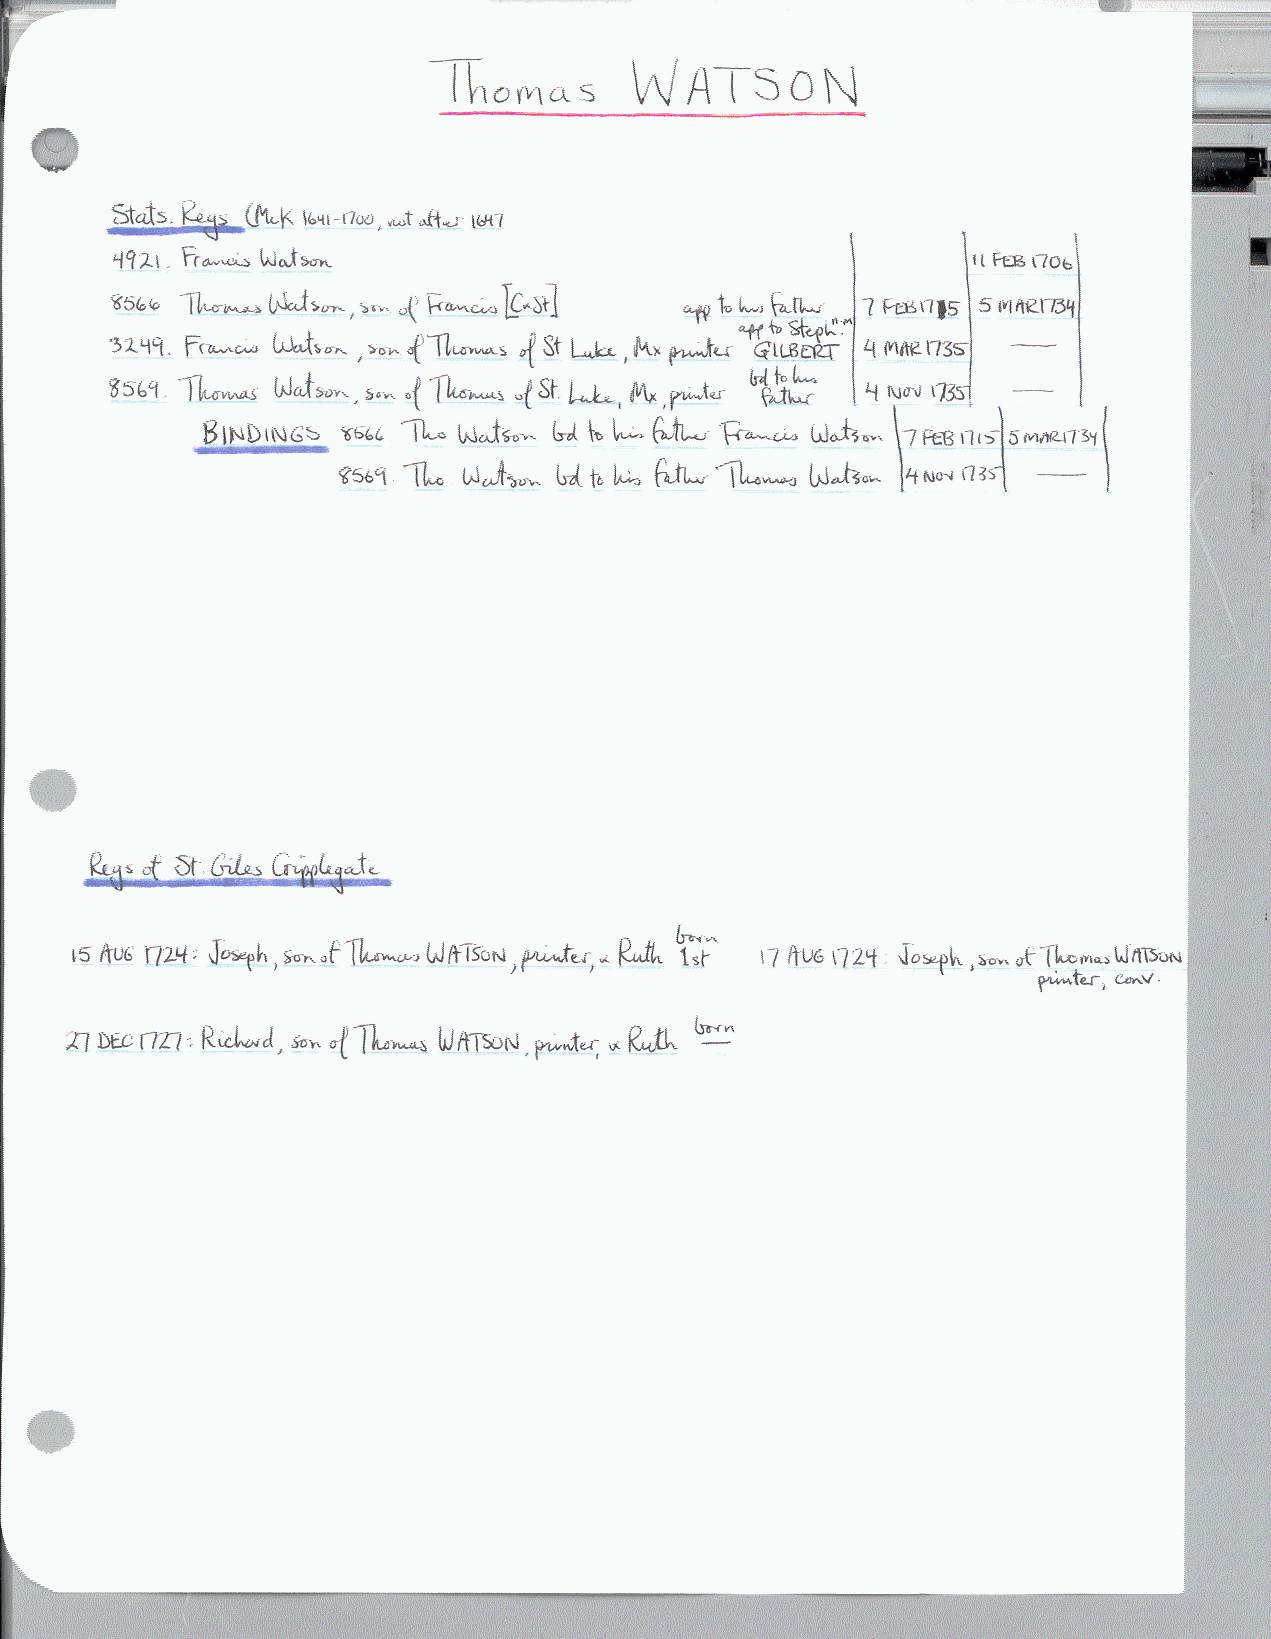 Thomas WATSON
Stats. Regs (McK 1641-1700, not after 1647
4921. Francis Watson 11 FEB 1706
8566 Thomas Watson, son of Francis [C&St] app to his father 7 FEB 1715 5 MAR 1734
3249. Francis Watson, son of Thomas of St Luke, Mx printer app to Steph. GILBERT 4 MAR 1735 —
8569. Thomas Watson, son of Thomas of St. Luke, Mx, printer bd to his father 4 NOV 1735 —
BINDINGS 8566 Tho Watson bd to his father Francis Watson 7 FEB 1715 5 MAR 1734
8569. Tho Watson bd to his father Thomas Watson 4 NOV 1735 —
Regs of St. Giles Cripplegate
15 AUG 1724: Joseph, son of Thomas WATSON, printer, & Ruth born 1st 17 AUG 1724: Joseph, son of Thomas WATSON
printer, conv.
27 DEC 1727: Richard, son of Thomas WATSON, printer, & Ruth born —